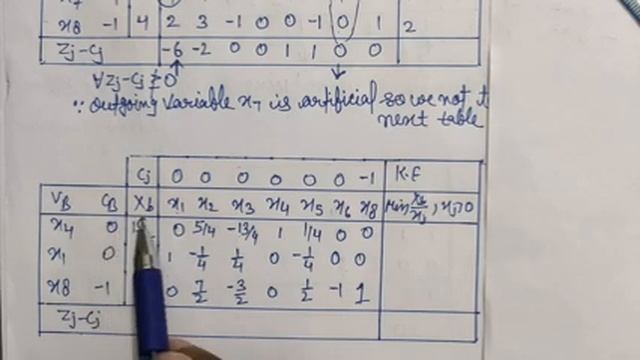 x8 -1 4 2 3 -1 0 0 -1 0 1 2
Zj-Cj -6 -2 0 0 1 1 0 0
∀Zj-Cj ≱0
∵ outgoing variable x7 is artificial so we not
next table
Cj 0 0 0 0 0 0 -1 K.E
VB CB Xb x1 x2 x3 x4 x5 x6 x8 Min Xb/xj, xj>0
x4 0 0 5/4 -13/4 1 1/4 0 0
x1 0 1 -1/4 1/4 0 -1/4 0 0
x8 -1 0 7/2 -3/2 0 1/2 -1 1
Zj-Cj